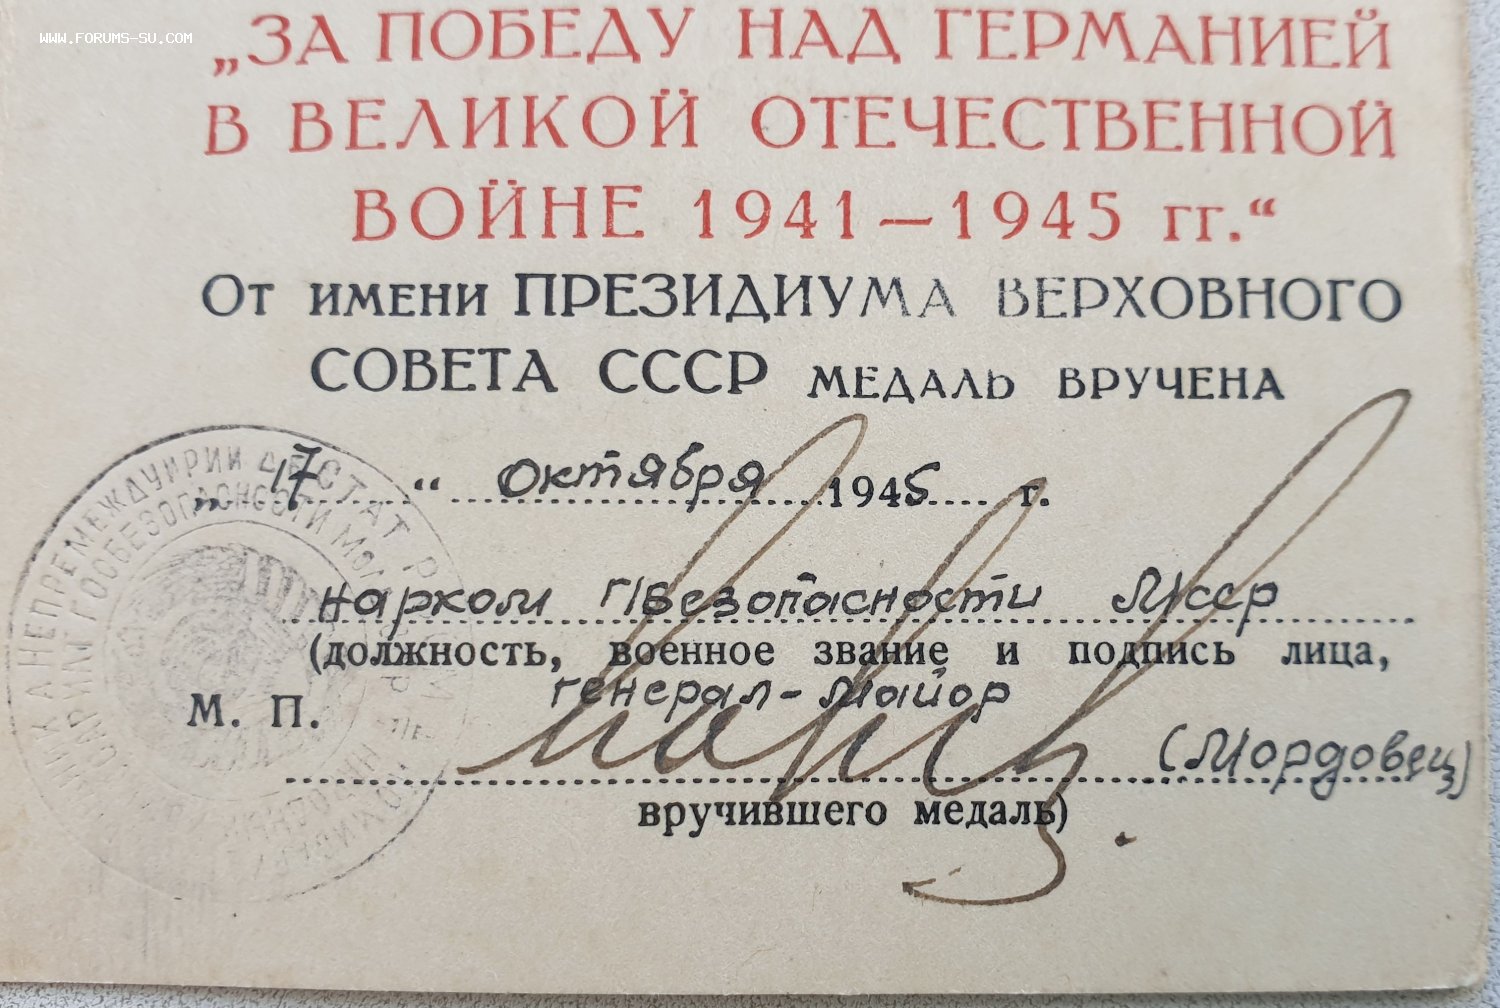 WWW.FORUMS-SU.COM
„ЗА ПОБЕДУ НАД ГЕРМАНИЕЙ
В ВЕЛИКОЙ ОТЕЧЕСТВЕННОЙ
ВОЙНЕ 1941—1945 гг.“
От имени ПРЕЗИДИУМА ВЕРХОВНОГО
СОВЕТА СССР МЕДАЛЬ ВРУЧЕНА
„17“ октября 1945 г.
Нарком Г/Безопасности МССР
(должность, военное звание и подпись лица,
генерал-майор
М. П.
(Мордовец)
вручившего медаль)